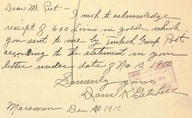 Dear Mr. Peet:- I wish to acknowledge
receipt of 600 Liras in gold which
you sent to me by Turkish Group Post
according to the statement in your
letter under date of Nov 10, 1910.
Sincerely yours
Dana K. Getchell
Marsovan Dec 10 1910.